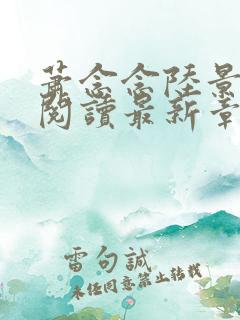 蕭念念陸景
閱讀最新章
雷句誠
未经同意禁止转载